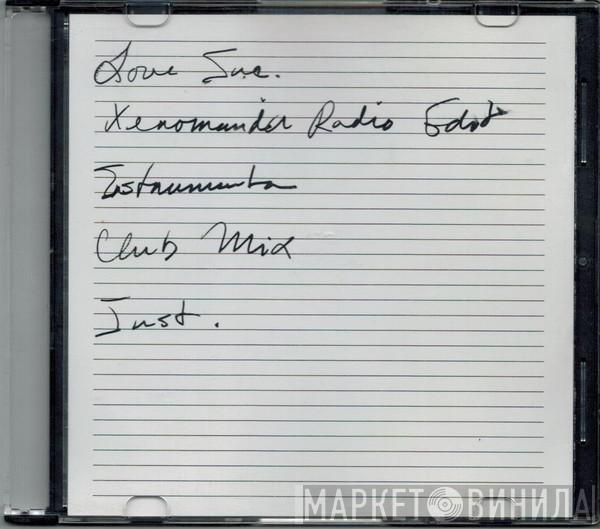 Love Inc.
Xenomander Radio Edit
Instrumenta
Club Mix
Inst.
МАРКЕТ ВИНИЛА